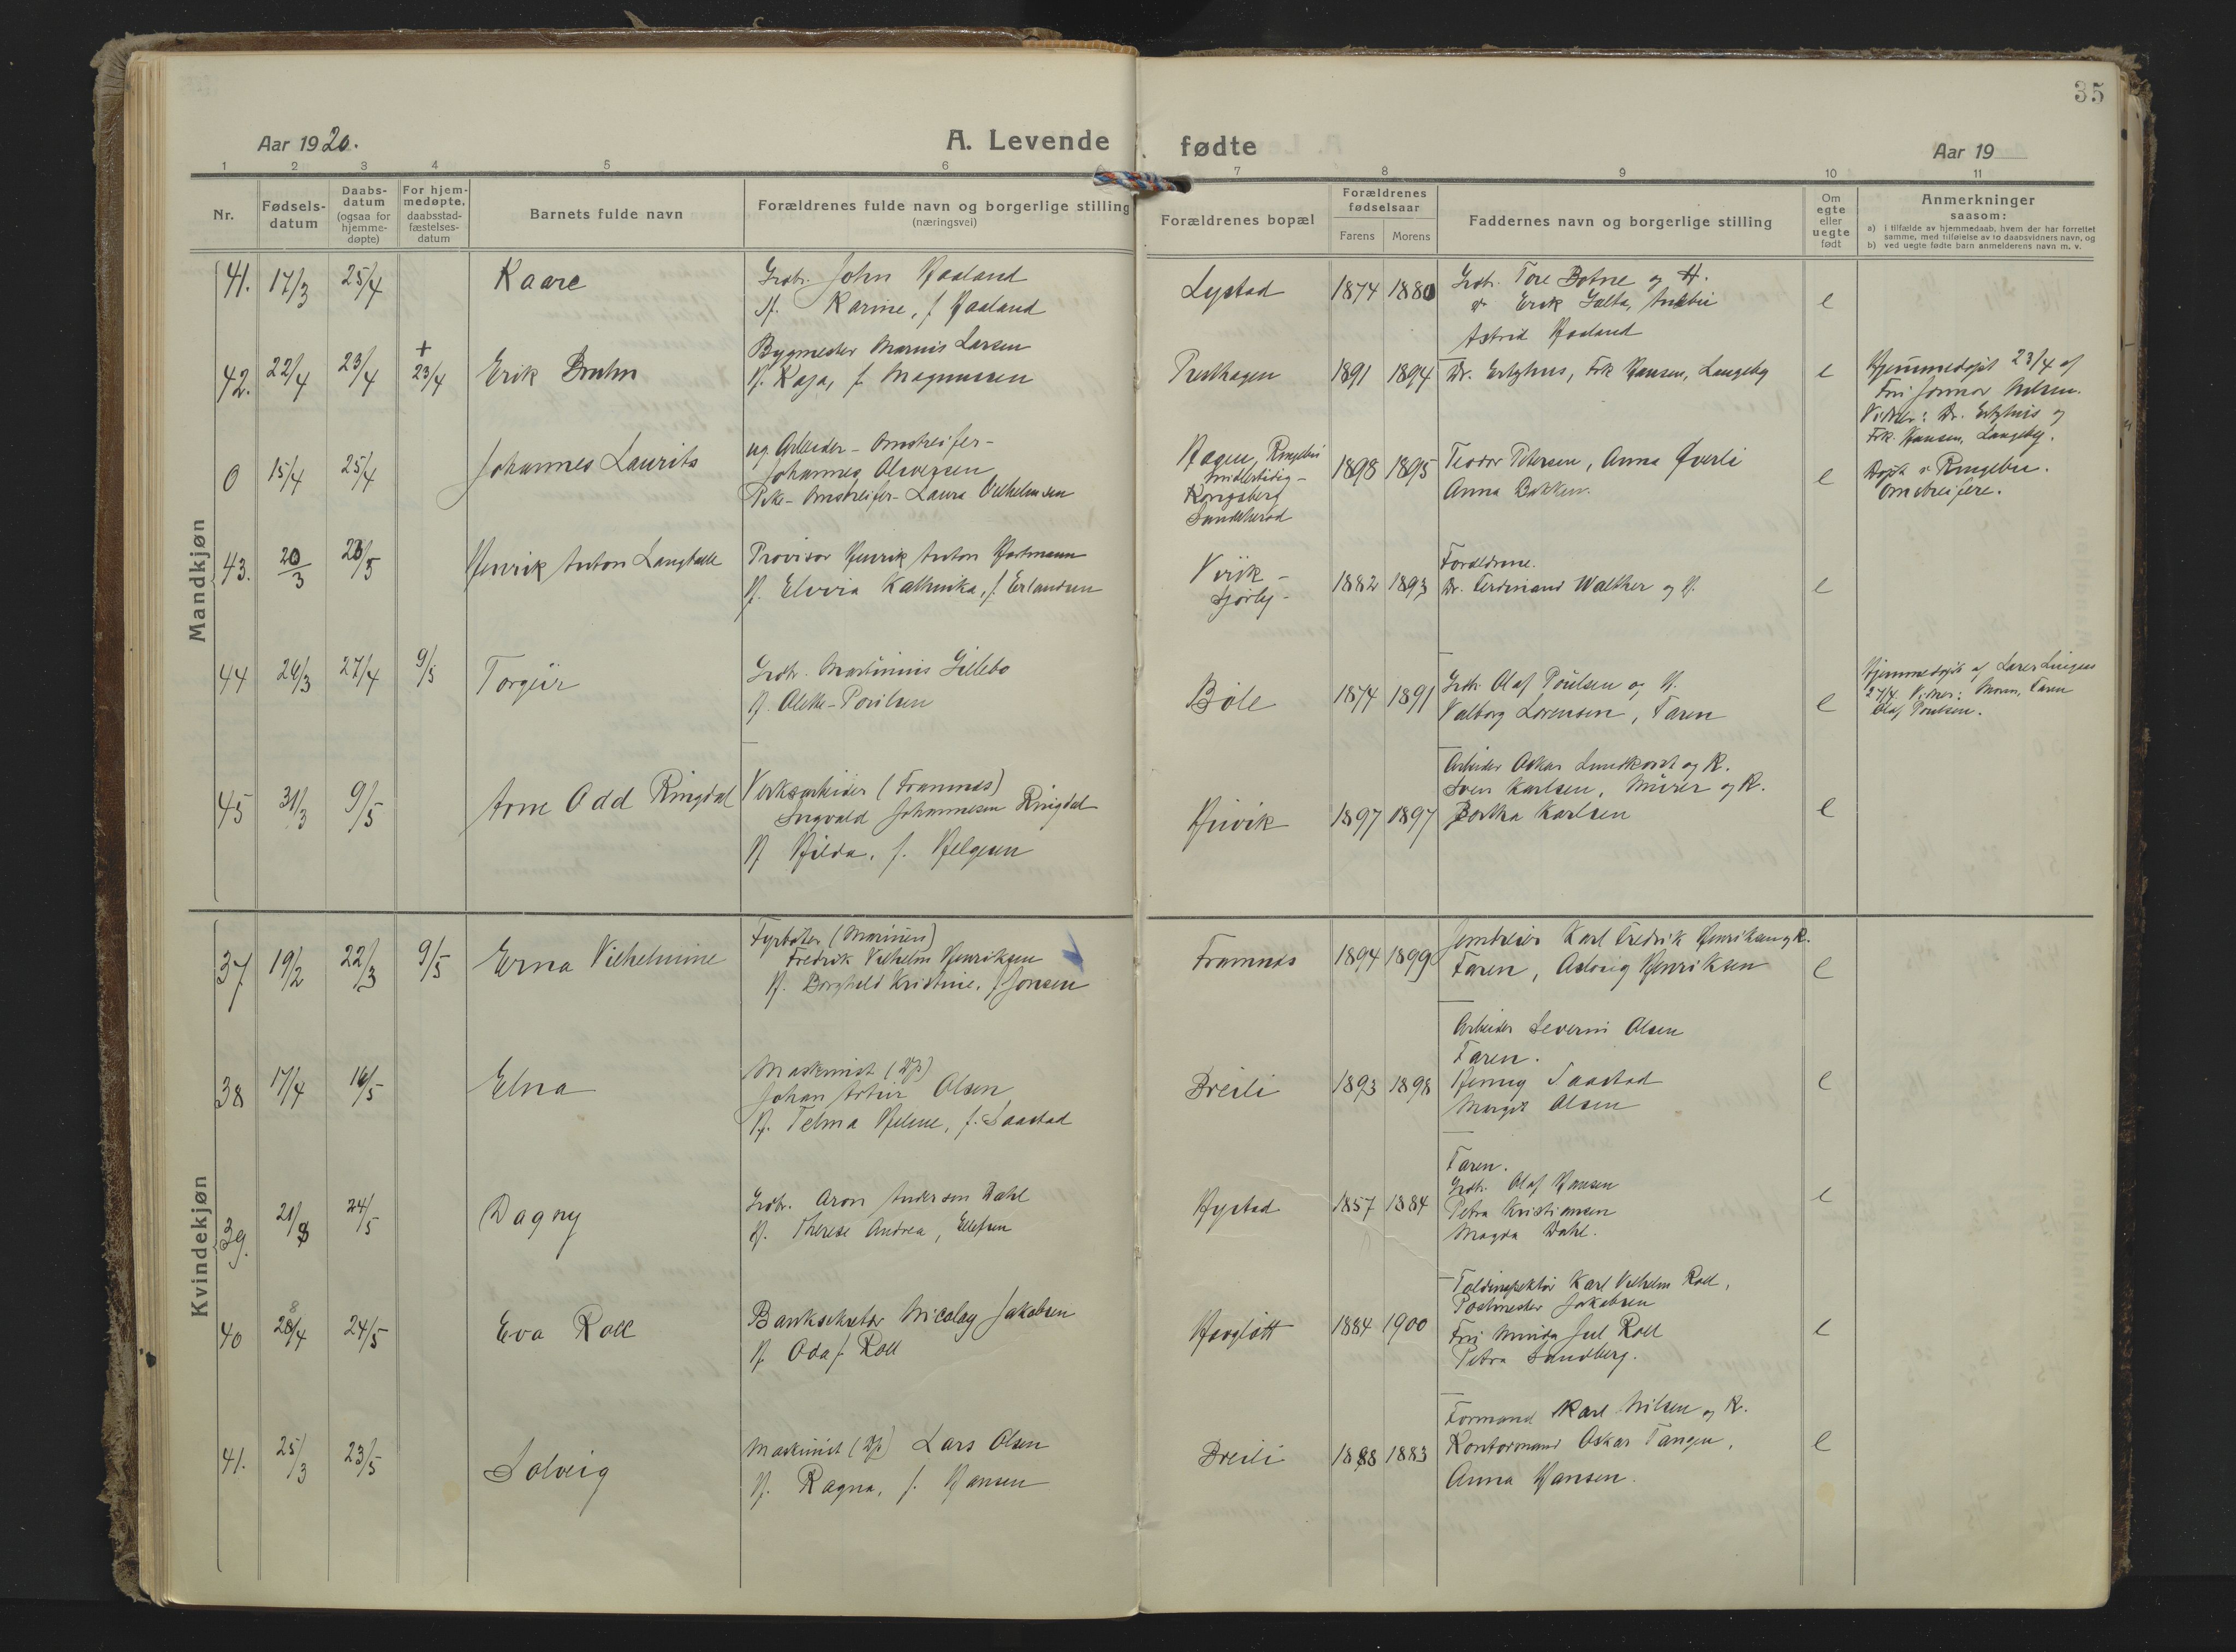 35
Aar 1920.
A. Levende fødte
Aar 19
1 2 3 4 5 6 7 8 9 10 11
Nr.
Fødsels-
datum
Daabs-
datum
(ogsaa for
hjemme-
døpte)
For hjem-
medøpte,
daabsstad-
fæstelses-
datum
Barnets fulde navn
Forældrenes fulde navn og borgerlige stilling
(næringsvei)
Forældrenes bopæl
Forældrenes
fødselsaar
Farens Morens
Faddernes navn og borgerlige stilling
Om
egte
eller
uegte
født
Anmerkninger
saasom:
a) i tilfælde av hjemmedaab, hvem der har forrettet
samme, med tilføielse av to daabsvidners navn, og
b) ved uegte fødte barn anmelderens navn m. v.
Mandkjøn
41. 17/3 25/4 Kaare
Grdbr. John Haaland
H. Karine, f. Haaland
1874 1880
Grdbr. Tore Botne og H.
Erik Galta,
Astrid Haaland
e
42. 22/4 23/4 + 23/4 Erik Bruhn
Bygmester Marius Larsen
H. Kaja, f. Magnussen
1891 1894
Dr. Ertzhus, Frk Hansen, Langeby
e
Hjemmedøpt 23/4 af
Fru Gunnor Nilsen.
Vidner: Dr. Ertzhus og
Frk. Hansen, Langeby.
0 15/4 25/4 Johannes Laurits
ug. Arbeider - Omstreifer -
Johannes Olavesen
Pike - Omstreifer - Laura Vilhelmsen
Hagen, Ringebu
midlertidig -
Kongsberg
Sandeherad
1898 1895
Teodor Petersen, Anna Øverli
Anna Bakken.
e
Døpt i Ringebu.
Omstreifere.
43. 20/3 23/5 Henrik Anton
Provisor Henrik Anton Hartmann
H. Elvira Kathinka, f. Erlandsen
Virik -
1882 1893
Forældrene.
Dr. Ferdinand Walther og H.
e
44 26/3 27/4 9/5 Torgeir
Grdbr. Martinius Gillebo
H. Alette Poulsen
Bøle
1874 1891
Grdbr. Olaf Poulsen og H.
Valborg Lorensen, Faren
e
Hjemmedøpt af
27/4. Vidner: Moren, Faren
Olaf Poulsen.
45 31/3 9/5 Arne Odd Ringdal
Verksarbeider (Framnæs)
Ingvald Johannesen Ringdal
H. Hilda, f. Helgesen
Huvik
1897 1897
Arbeider Oskar Lundkvist og K.
Sven Karlsen, Murer og K.
Bertha Karlsen
e
Kvindekjøn
37 19/2 22/3 9/5 Erna Vilhelmine
Fyrbøter (Marinen)
Fredrik Vilhelm Henriksen
H. Borghild Kristine, f. Jonsen
Framnæs
1894 1899
Karl Fredrik Henriksen og K.
Faren, Aslaug Henriksen
e
38 17/4 16/5 Elna
Maskinist (Dp)
Johan Artur Olsen
H. Telma Helene, f. Saastad
Breili
1893 1898
Arbeider Severin Olsen
Faren.
Henny Saastad
Margit Olsen
e
39. 21/3 24/5 Dagny
Grdbr. Aron Andersen Dahl
H. Therese Andrea, Ellefsen
Hystad
1857 1884
Faren.
Grdbr. Olaf Hansen
Petra Kristiansen
Magda Dahl.
e
40 28/4 24/5 Eva Roll
Banksekretær Nicolay Jakobsen
H. Oda f. Roll
1884 1900
Toldinspektør Karl Vilhelm Roll,
Postmester Jakobsen
Fru Roll
Petra Sandberg.
e
41. 25/3 23/5 Solveig
Maskinist (Dp) Lars Olsen
H. Ragna, f. Hansen
Breili
1888 1883
Formand Karl Nilsen og K.
Kontormand Oskar Tangen,
Anna Hansen.
e